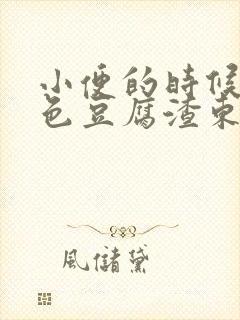 小便的時候
色豆腐渣東
風儲黛